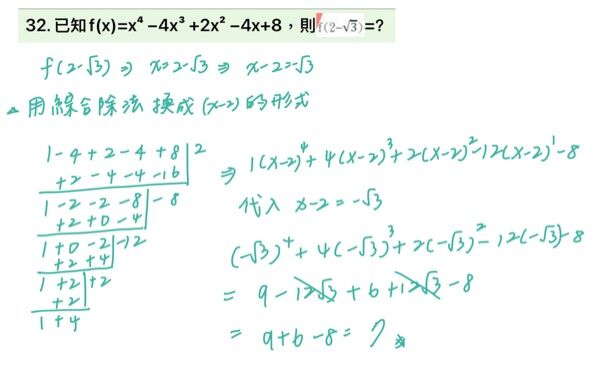 32. 已知f(x)=x⁴ −4x³ +2x² −4x+8，則f(2−√3)=?
f(2-√3) ⇒ x=2-√3 ⇒ x-2=-√3
用綜合除法 換成 (x-2) 的形式
1-4+2-4+8|2
+2-4-4-16
1-2-2-8|-8
+2+0-4
1+0-2|-12
+2+4
1+2|+2
+2
1+4
⇒ 1(x-2)⁴+4(x-2)³+2(x-2)²-12(x-2)¹-8
代入 x-2=-√3
(-√3)⁴+4(-√3)³+2(-√3)²-12(-√3)-8
= 9-12√3+6+12√3-8
= 9+6-8=7